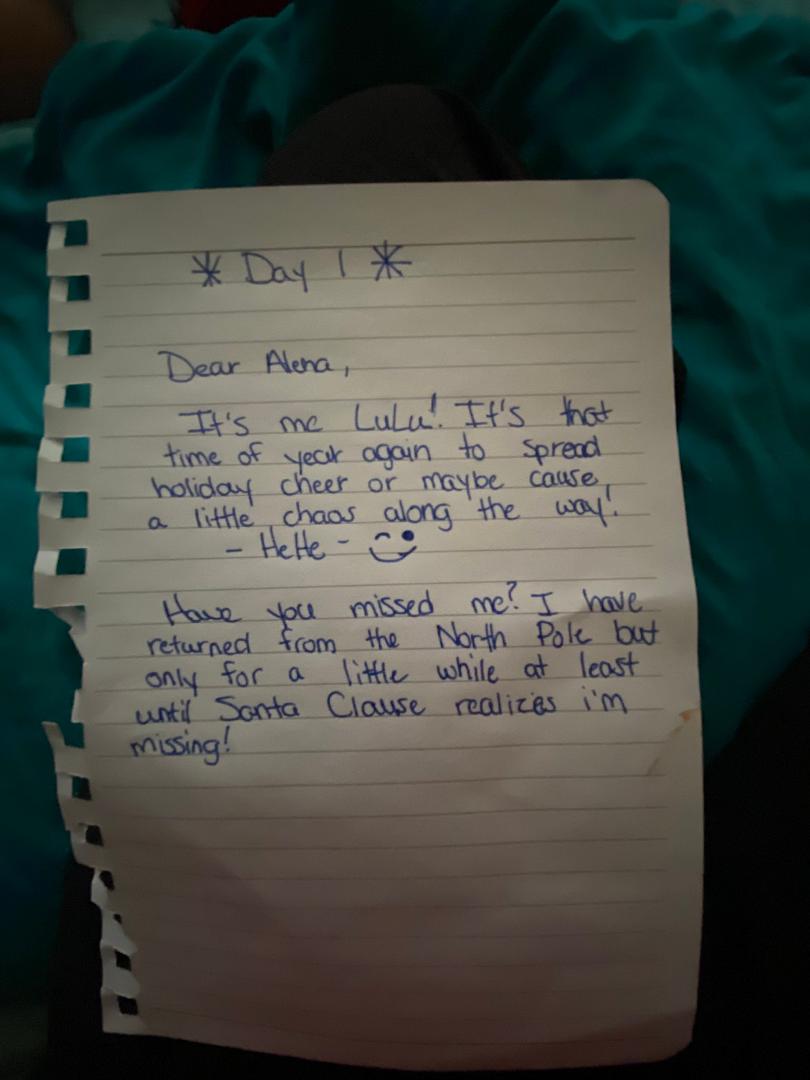 * Day 1 *
Dear Alena,
It's me LuLu! It's that
time of year again to spread
holiday cheer or maybe cause,
a little chaos along the way!
- HeHe -
Have you missed me? I have
returned from the North Pole but
only for a little while at least
until Santa Clause realizes i'm
missing!